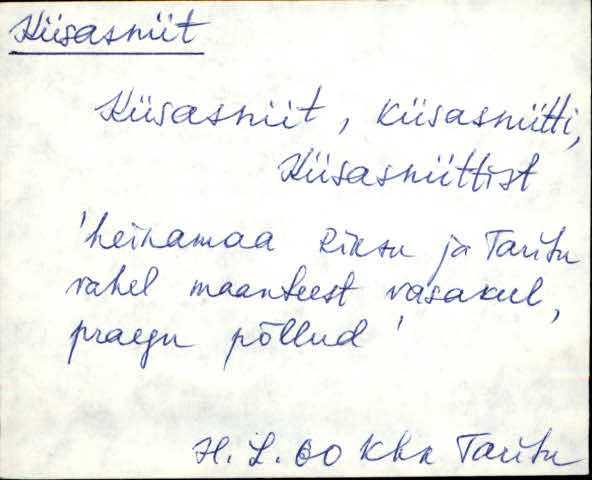 Kiisasniit
Kiisasniit, Kiisasniitti,
Kiisasniittist
'heinamaa Riksu ja Taritu
vahel maanteest vasakul,
praegu põllud'
H. L. 60 Khk Taritu